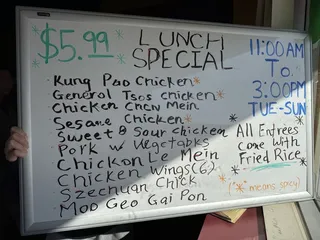 $5.99
LUNCH
SPECIAL
11:00AM
TO
3:00PM
TUE-SUN
Kung Pao Chicken*
General Tsos chicken*
Chicken Chan Mein
Sesame Chicken*
Sweet & Sour chicken
Pork w Vegetables
Chickon Le Mein
Chicken Wings(6)
Szechuan Chick
Moo Geo Gai Pon
All Entrees
come With
Fried Rice
(* means spicy)